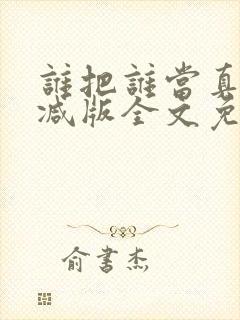 誰把誰當真
减版全文免
俞書杰